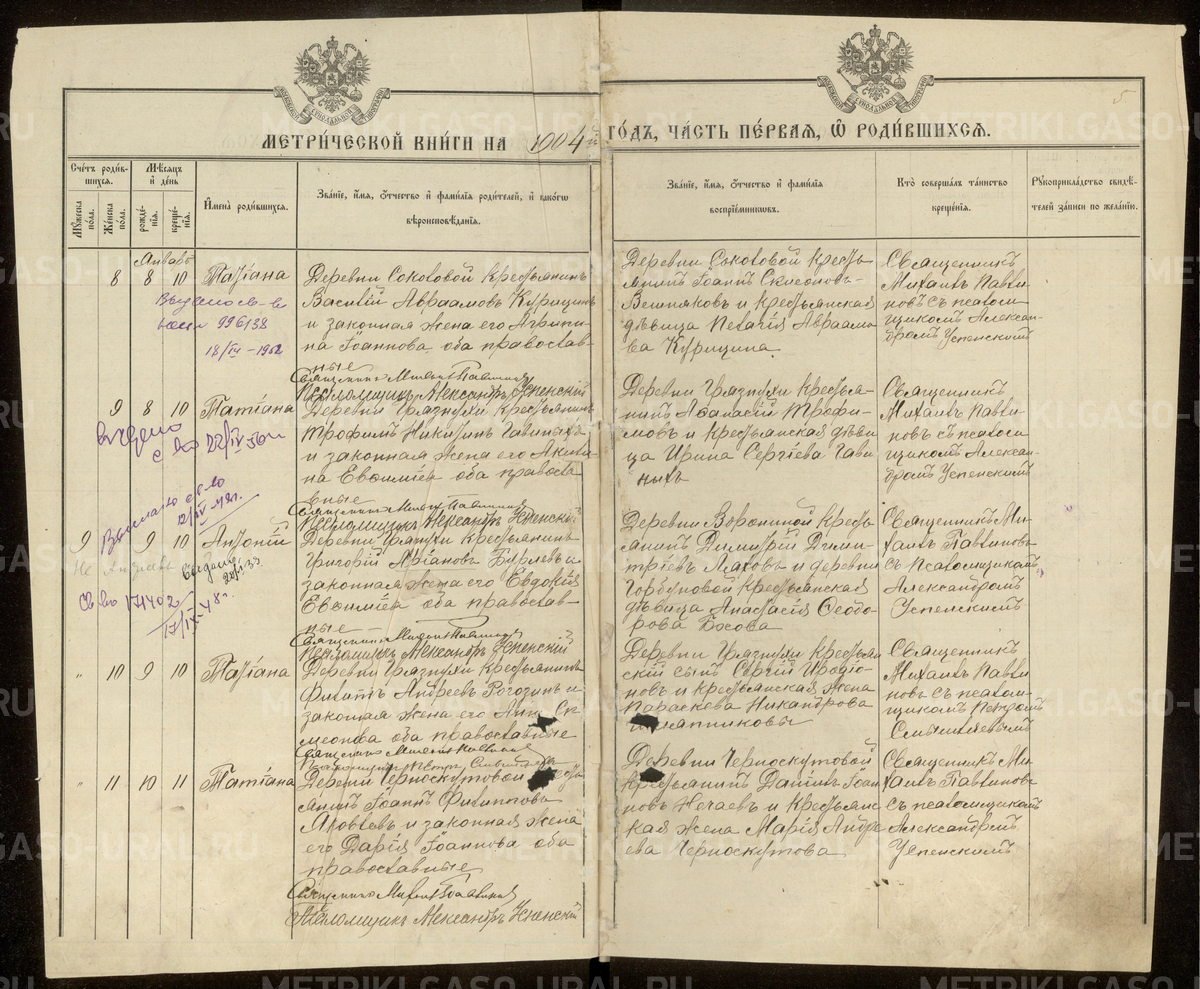 МЕТРИ́ЧЕСКОЙ КНИ́ГИ НА 1904й ГО́ДЪ, ЧА́СТЬ ПЕ́РВАЯ, Ѡ РОДИ́ВШИХСѦ.
5
Сче́тъ роди́в-
шихся.
Му́жеска по́ла.
Же́нска по́ла.
Мѣ́сяцъ
и де́нь
рожде́нія.
креще́нія.
И̓мена̀ роди́вшихся.
Зва́ніе, и́мя, ѻ́тчество и фами́лія роди́телей, и како́гѡ
вѣроисповѣ́данія.
Зва́ніе, и́мя, ѻ́тчество и фами́лія
воспріе́мниковъ.
Кто̀ соверша́лъ та́инство
креще́нія.
Рꙋкоприкла́дство свидѣ́-
телей за́писи по жела́нію.
Январь
8 8 10 Татіана
Деревни Соколовой крестьянинъ
Василій Авраамовъ Курицинъ
и законная жена его Агрипи-
на Іоаннова, оба православ-
ные
Священникъ Михаилъ Павлиновъ
Псаломщикъ Александръ Успенскій
Деревни Соколовой кресть-
янинъ Іоаннъ
Вешняковъ и крестьянская
дѣвица Пелагія Авраамо-
ва Курицина
Священникъ
Михаилъ Павли-
новъ съ псалом-
щикомъ Алексан-
дромъ Успенскимъ
996138
18/IV-1952
9 8 10 Татіана
Деревни Грязнухи крестьянинъ
Трофимъ Никитинъ Гавиныхъ
и законная жена его Акили-
на Евѳиміева оба правосла-
вные
Священникъ Михаилъ Павлиновъ
Псаломщикъ Александръ Успенскій
Деревни Грязнухи крестья-
нинъ Аѳанасій Трофи-
мовъ и крестьянская дѣви-
ца Ирина Сергіева Гави-
ныхъ
Священникъ
Михаилъ Павли-
новъ съ псалом-
щикомъ Алексан-
дромъ Успенскимъ
9 9 10 Антоній
Деревни Грязнухи крестьянинъ
Григорій Бурлевъ и
законная жена его Евдокія
Евѳиміева оба православ-
ные
Священникъ Михаилъ Павлиновъ
Псаломщикъ Александръ Успенскій
Деревни Ворониной кресть-
янинъ Димитрій Дими-
тріевъ Маховъ и деревни
Горбуновой крестьянская
дѣвица Анастасія Ѳеодо-
рова Босова
Священникъ Ми-
хаилъ Павлиновъ
съ псаломщикомъ
Александромъ
Успенскимъ
171402
17/IX 48г.
" 10 9 10 Татіана
Деревни Грязнухи крестьянинъ
Филиппъ Андреевъ Рогозинъ и
законная жена его Анна Си-
меонова оба православные
Священникъ Михаилъ Павлиновъ
Деревни Грязнухи крестьян-
скій сынъ Сергій Иродіо-
новъ и крестьянская жена
Параскева Никандрова
Священникъ
Михаилъ Павли-
новъ съ псалом-
щикомъ Петромъ
Смышляевымъ
" 11 10 11 Татіана
Деревни Черноскутовой кресть-
янинъ Іоаннъ Филипповъ
Яковлевъ и законная жена
его Дарія Іоаннова оба
православные
Священникъ Михаилъ Павлиновъ
Псаломщикъ Александръ Успенскій
Деревни Черноскутовой
крестьянинъ Даніилъ Іоан-
новъ Нечаевъ и крестьянс-
кая жена Марія Андре-
ева Черноскутова
Священникъ Ми-
хаилъ Павлиновъ
съ псаломщикомъ
Александромъ
Успенскимъ
METRIKI.GASO-URAL.RU